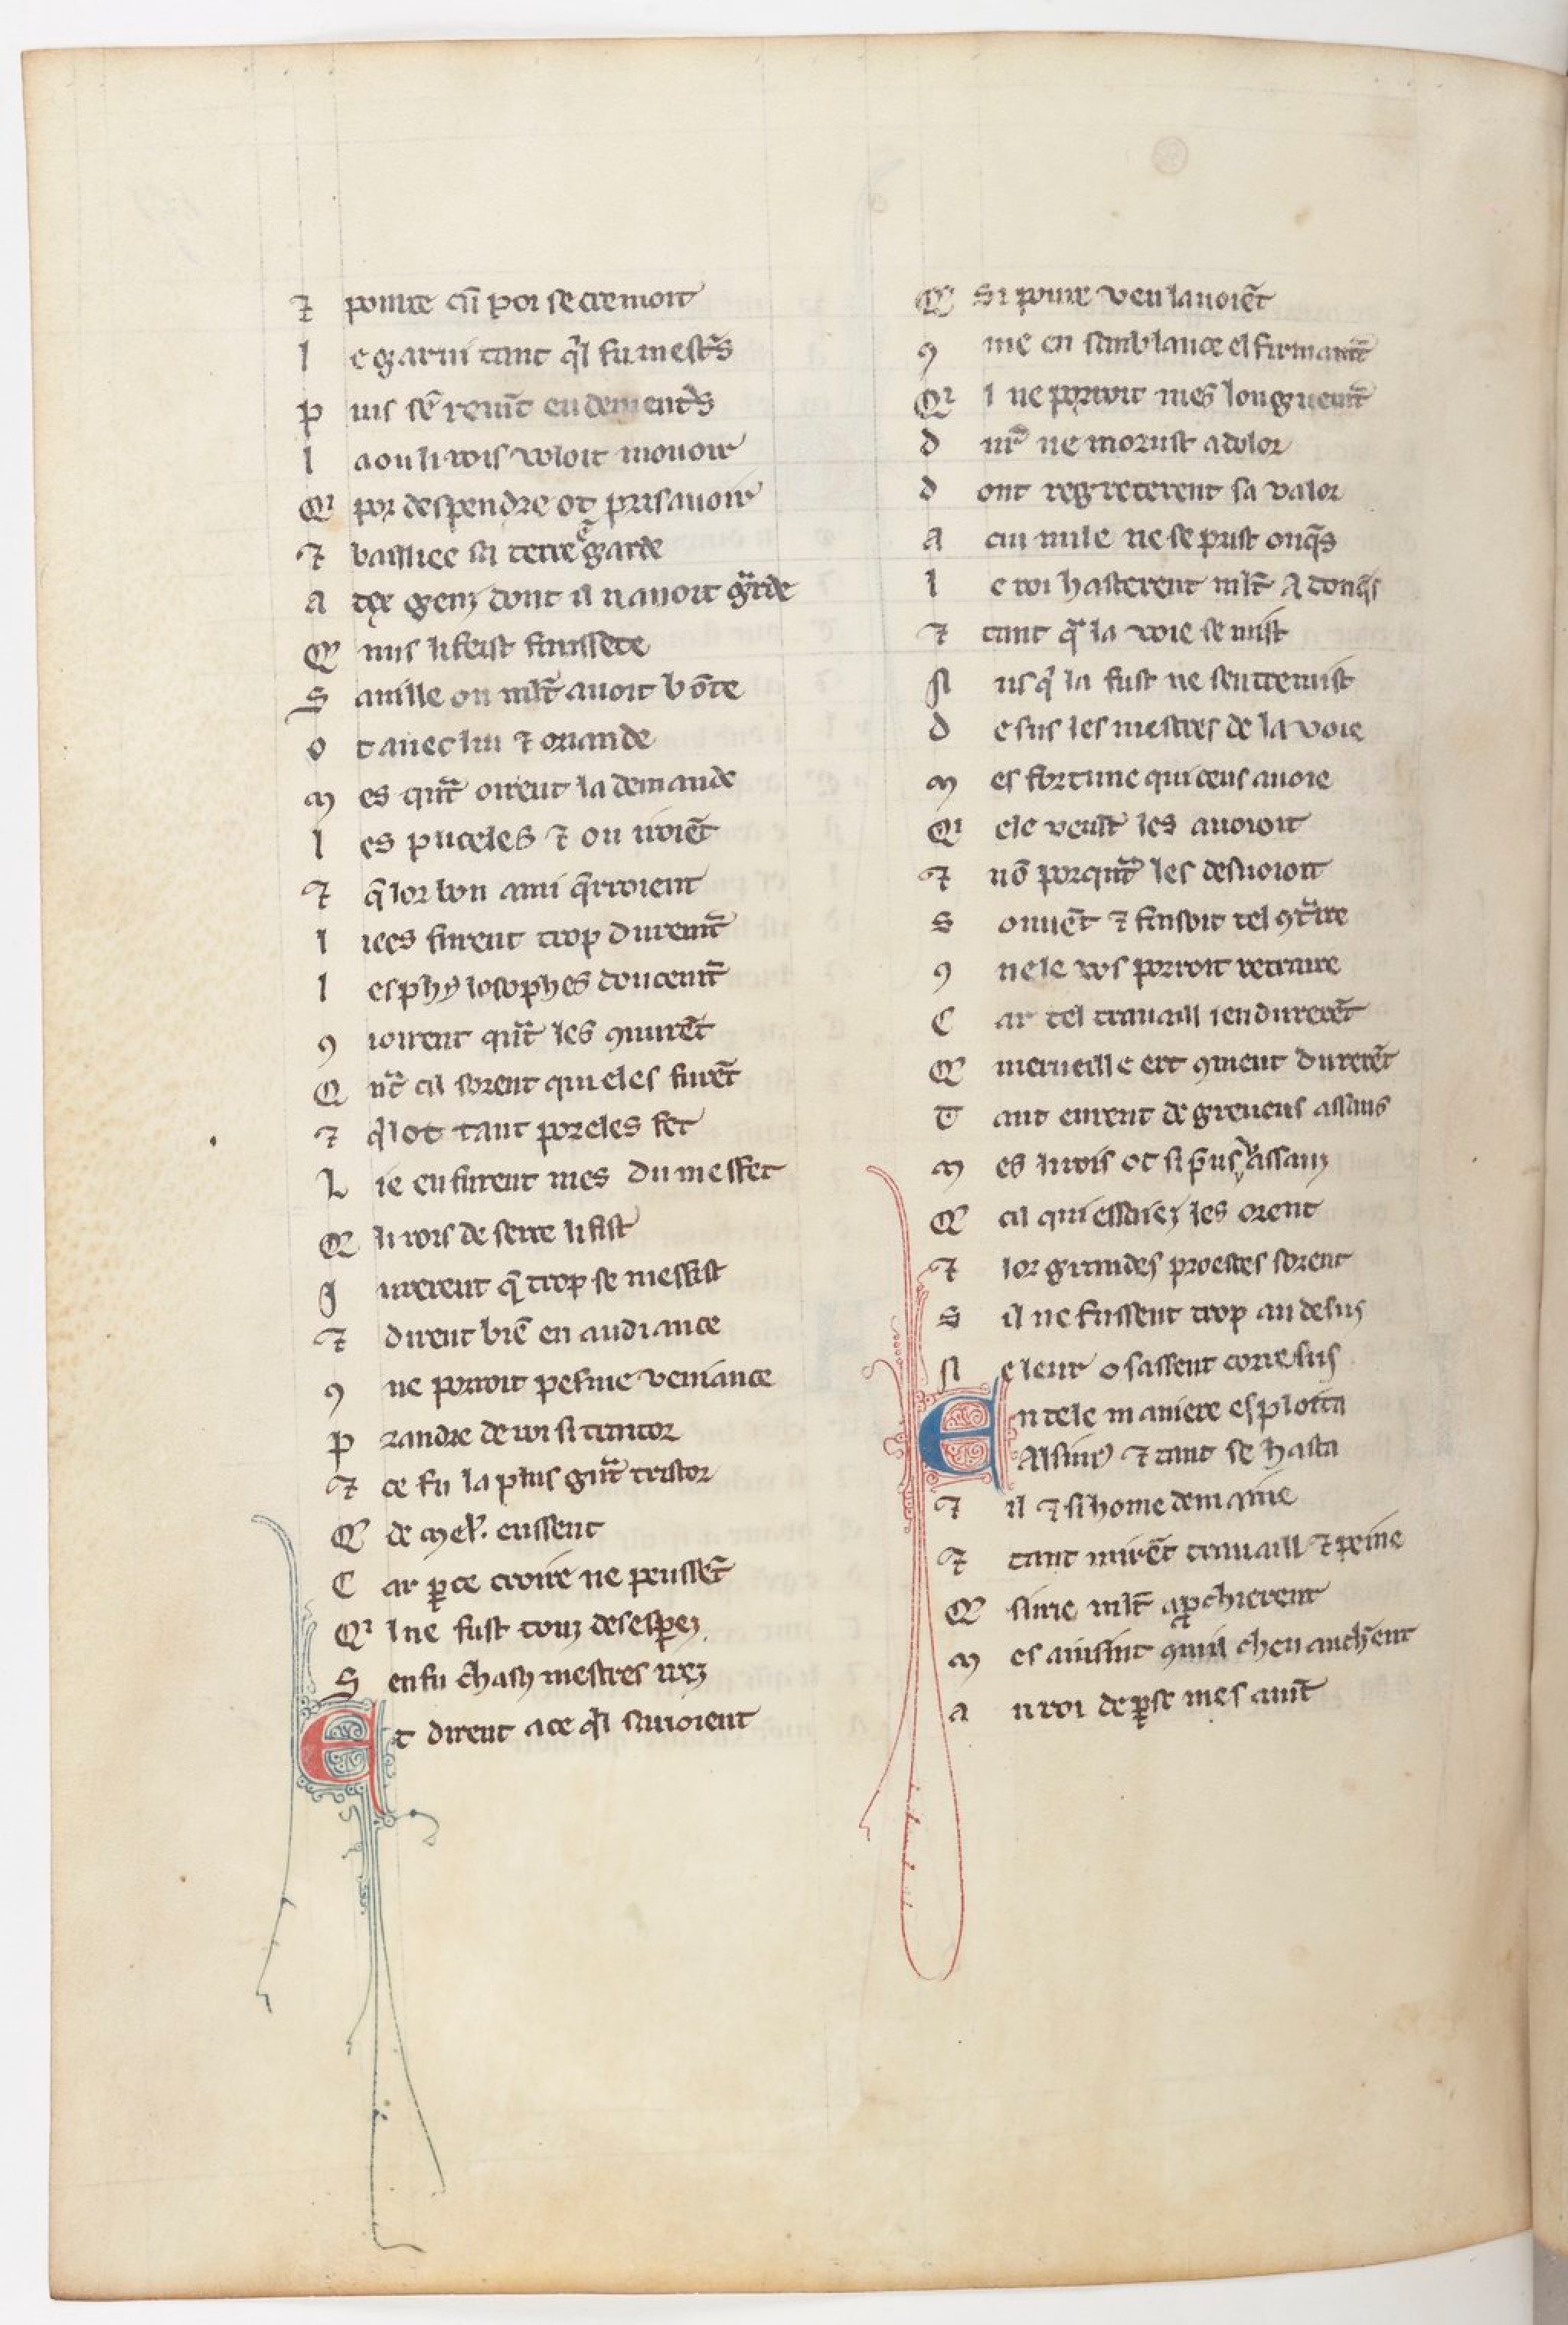 ⁊ pointe cū por se cremoit
l e garni tant ql̃ fu mestr̃s
p uis sẽ reuīt endementr̃s
l aou li rois voloit mouoir
Qi por despendre ot pris auoir
⁊ baillee sa terre ẽ garde
a tex genz dont il nauoit gãrde
Qe nus li feist faussete
S auille ou ml̃t auoit bõte
o t auec lui ⁊ oriande
m es qñt oirent la demande
l es puceles ⁊ ou iroiẽt
⁊ q̃ lor bon ami q̃rroient
l iees furent trop duremt̃
l es phylosophes doucemt̃
ꝯ ioirent qñt les ꝯnurẽt
Q ñt cil sorent qui eles furẽt
⁊ ql̃ ot tant por eles fet
L ie en furent mes du meffet
Qe li rois de serre li fist
J urerent q̃ trop se meffist
⁊ dirent biẽ en audiance
ꝯ ne porroit pesme veniance
p randre de roi si traitor
⁊ ce fu la plus gñt tristor
Qe de mel'. eussent
C ar ꝑ ce croire ne peussẽt
Qi l ne fust touz desesꝑez
S en fu chascꝰ mestres irez
Et dirent a ce ql̃ sauoient
Qe si pointe veu lauoiẽt
ꝯ me en sanblance el firmamt̃
Qi l ne porroit mes longuemt̃
d urer ne morust a dolor
d ont regreterent sa valor
a cui nule ne se prist onq̃s
l e roi hasterent ml̃t Adonq̃s
⁊ tant q̃ la voie se mist
N usq̃ la fust ne sentremist
d esus les mestres de la voie
m es fortune qui ceus auoie
Qi ele veult les auoioit
⁊ nõ porquãt les desuoioit
S ouuẽt ⁊ faisoit tel ꝯtr̃ire
ꝯ nele vos porroit retraire
C ar tel trauaill iendurerẽt
Qe merueille ert ꝯment durerẽt
T ant eurent de greueus assaus
m es li rois ot si pͥs vassauz
Qe cil qui essaiez les orent
⁊ lor grandes proesces sorent
S il ne fussent trop au desus
N e leur osassent corre sus
En tele maniere esploita
Alsinꝰ ⁊ tant se hasta
⁊ il ⁊ si home demaine
⁊ tant mirẽt trauaill ⁊ peine
Qe sirie ml̃t aꝑchierent
m es auisint ꝯ il cheuauchẽent
a u roi de ꝑse mes auīt